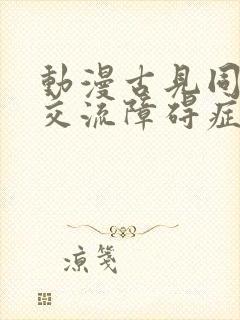 動漫古見同
交流障碍症
凉笺